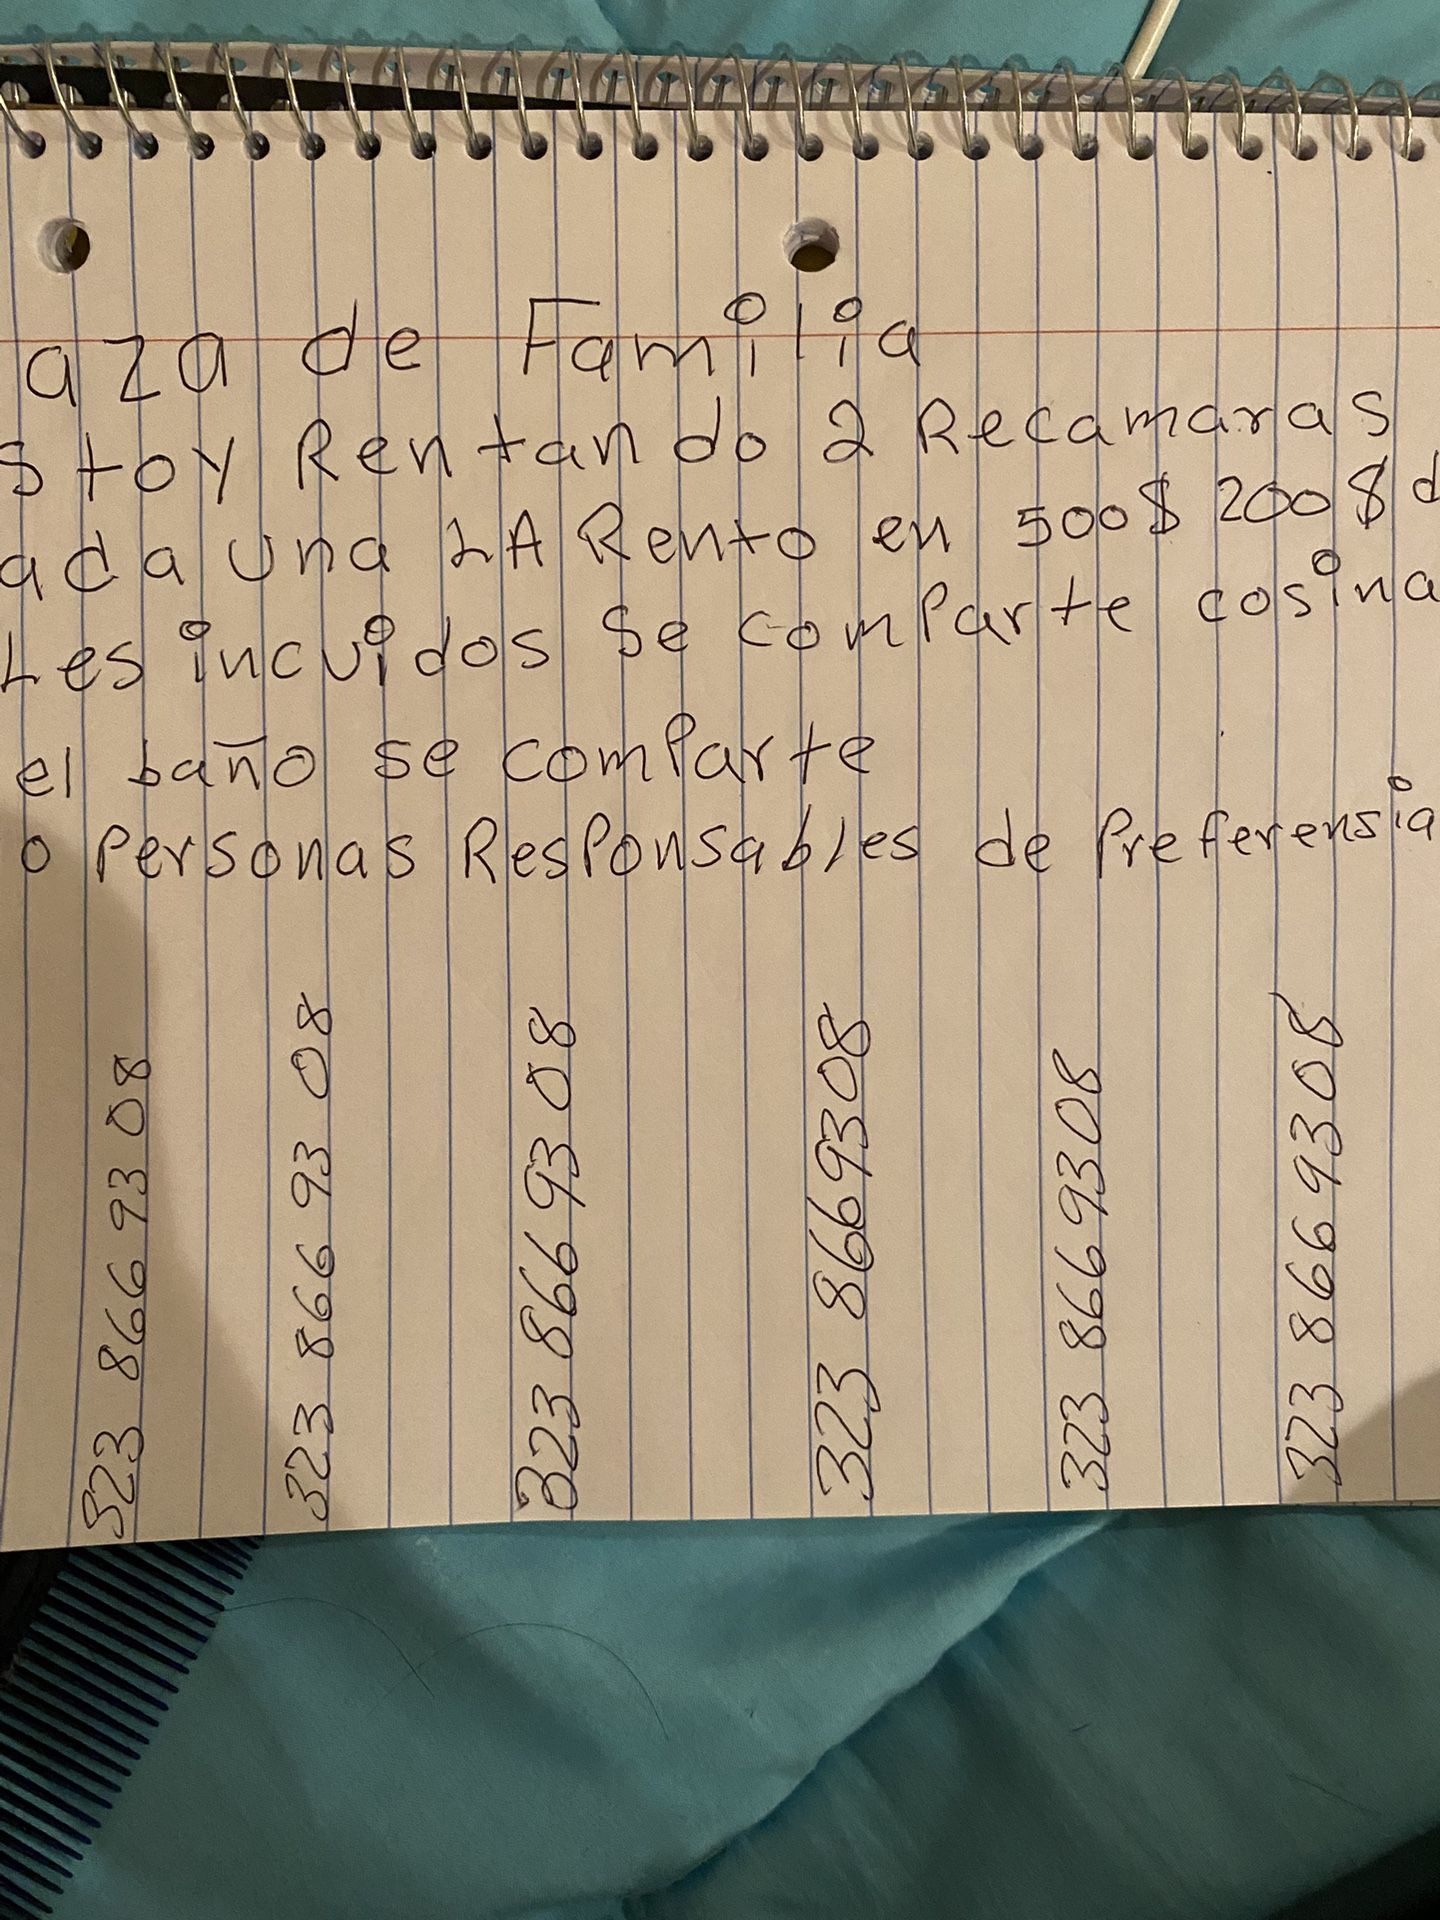 aza de Familia
stoy Rentando 2 Recamaras
ada una LA Rento en 500$ 200$ d
Les incuidos Se comparte cosina
el baño se comparte
o Personas Responsables de Preferensia
323 866 93 08
323 866 93 08
323 866 93 08
323 8669308
323 866 9308
323 866 9308